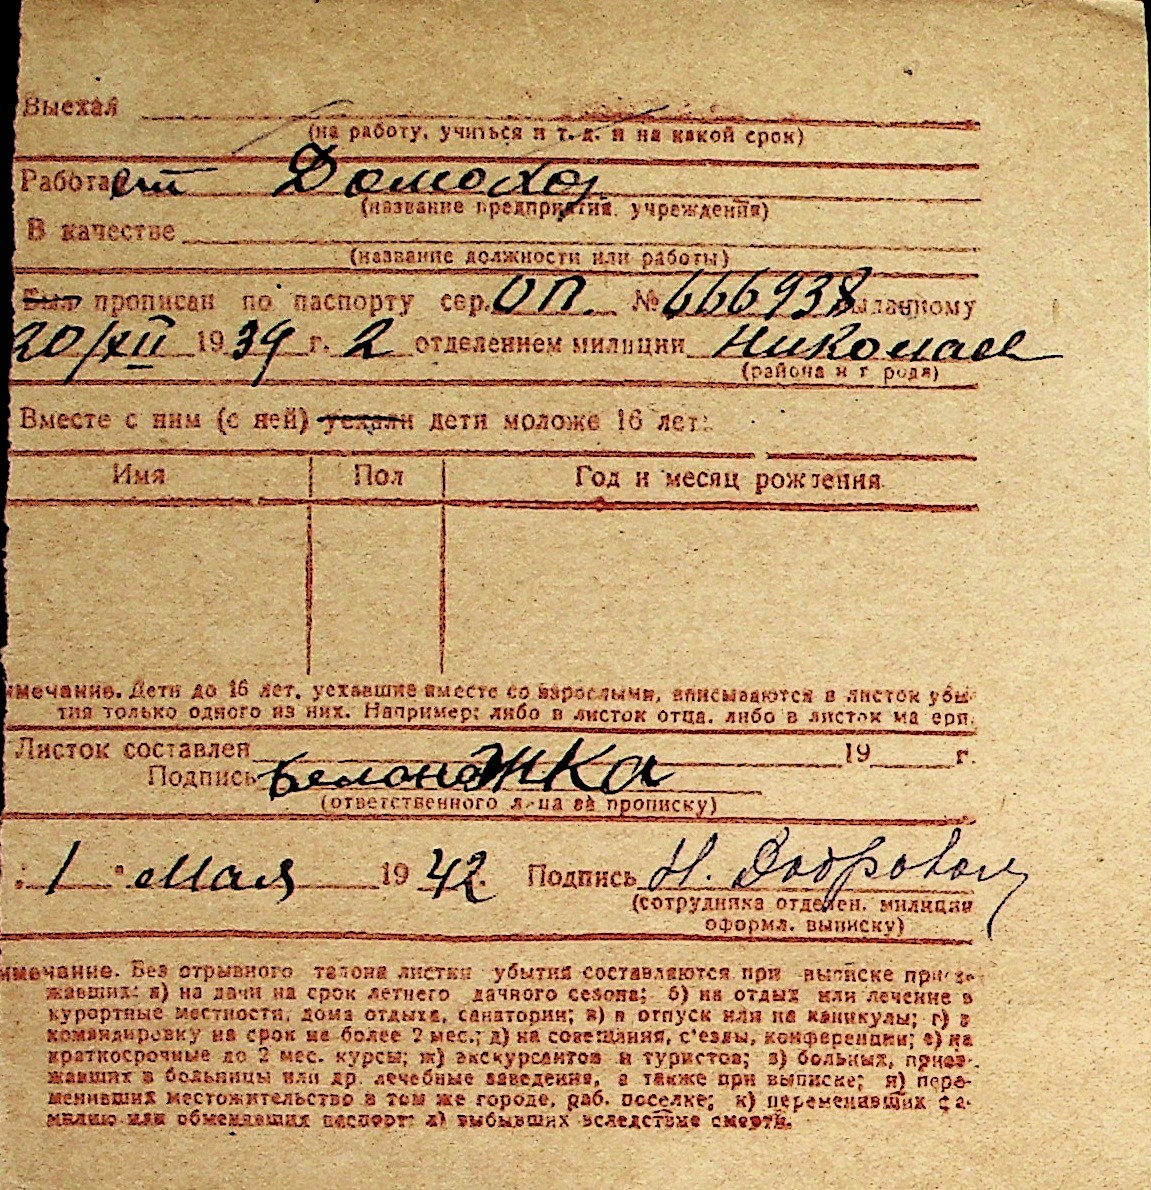 Выехал
(на работу, учиться и т. д. и на какой срок)
Работает Домохоз.
(название предприятия, учреждения)
В качестве
(название должности или работы)
Был прописан по паспорту сер. ОП. № 666938 выданному
20/XII 1939 г. 2 отделением милиции Николаев
(района и города)
Вместе с ним (с ней) уехали дети моложе 16 лет:
Имя Пол Год и месяц рождения
имечание. Дети до 16 лет, уехавшие вместе со взрослыми, вписываются в листок убы-
тия только одного из них. Например: либо в листок отца, либо в листок матери.
Листок составлен 19 г.
Подпись
(ответственного лица за прописку)
1 " Мая 1942. Подпись Н. Добровол
(сотрудника отделен. милиции
оформл. выписку)
имечание. Без отрывного талона листки убытия составляются при выписке приез-
жавших: а) на дачи на срок летнего дачного сезона; б) на отдых или лечение в
курортные местности, дома отдыха, санатории; в) в отпуск или на каникулы; г) в
командировку на срок не более 2 мес.; д) на совещания, с'езды, конференции; е) на
краткосрочные до 2 мес. курсы; ж) экскурсантов и туристов; з) больных, приез-
жавших в больницы или др. лечебные заведения, а также при выписке; и) пере-
менивших местожительство в том же городе, раб. поселке; к) переменивших фа-
милию или обменявших паспорт; л) выбывших вследствие смерти.